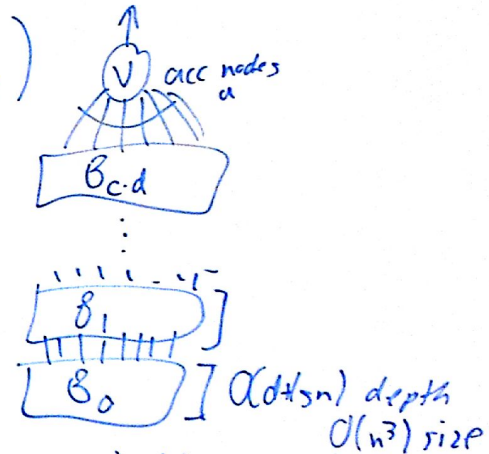 )
V acc nodes
a
B_{c·d}
⋮
B_1 ]
B_0 ] O(d+lgn) depth
O(n³) size